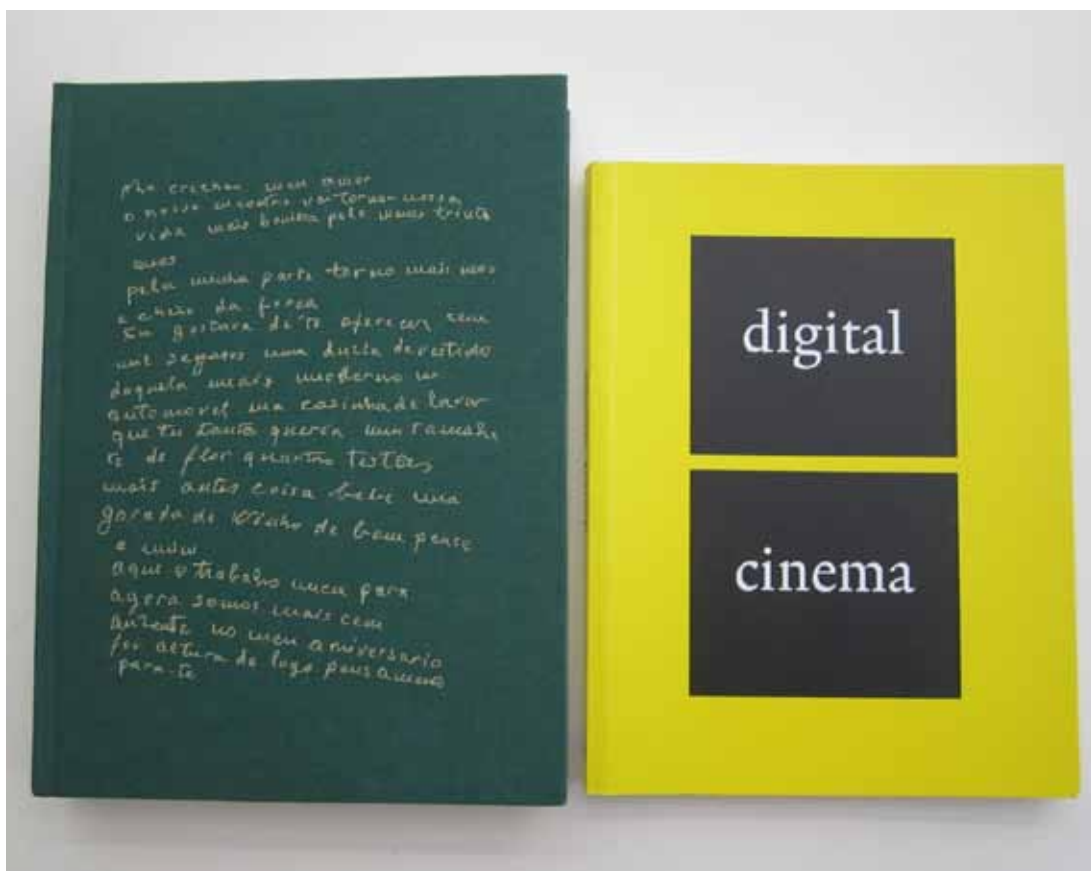 meu amor
o nosso encontro vai tornar nossa
vida mais bonita pelo menos trinta
anos
pela minha parte torno mais novo
e cheio da força
Eu gostara de te oferecer cem
mil segatos uma duzia de vestido
daquela mais moderno um
automovel uma casinha de lava
que tu tanto queria um ramalhe
te de flor quantro tostões
mais antes coisa bebe uma
garafa de vinho de bom pense
e mim
aqui o trabalho nunca para
agora somos mais cem
no meu aniversario
por altura de logo
para-te
digital
cinema